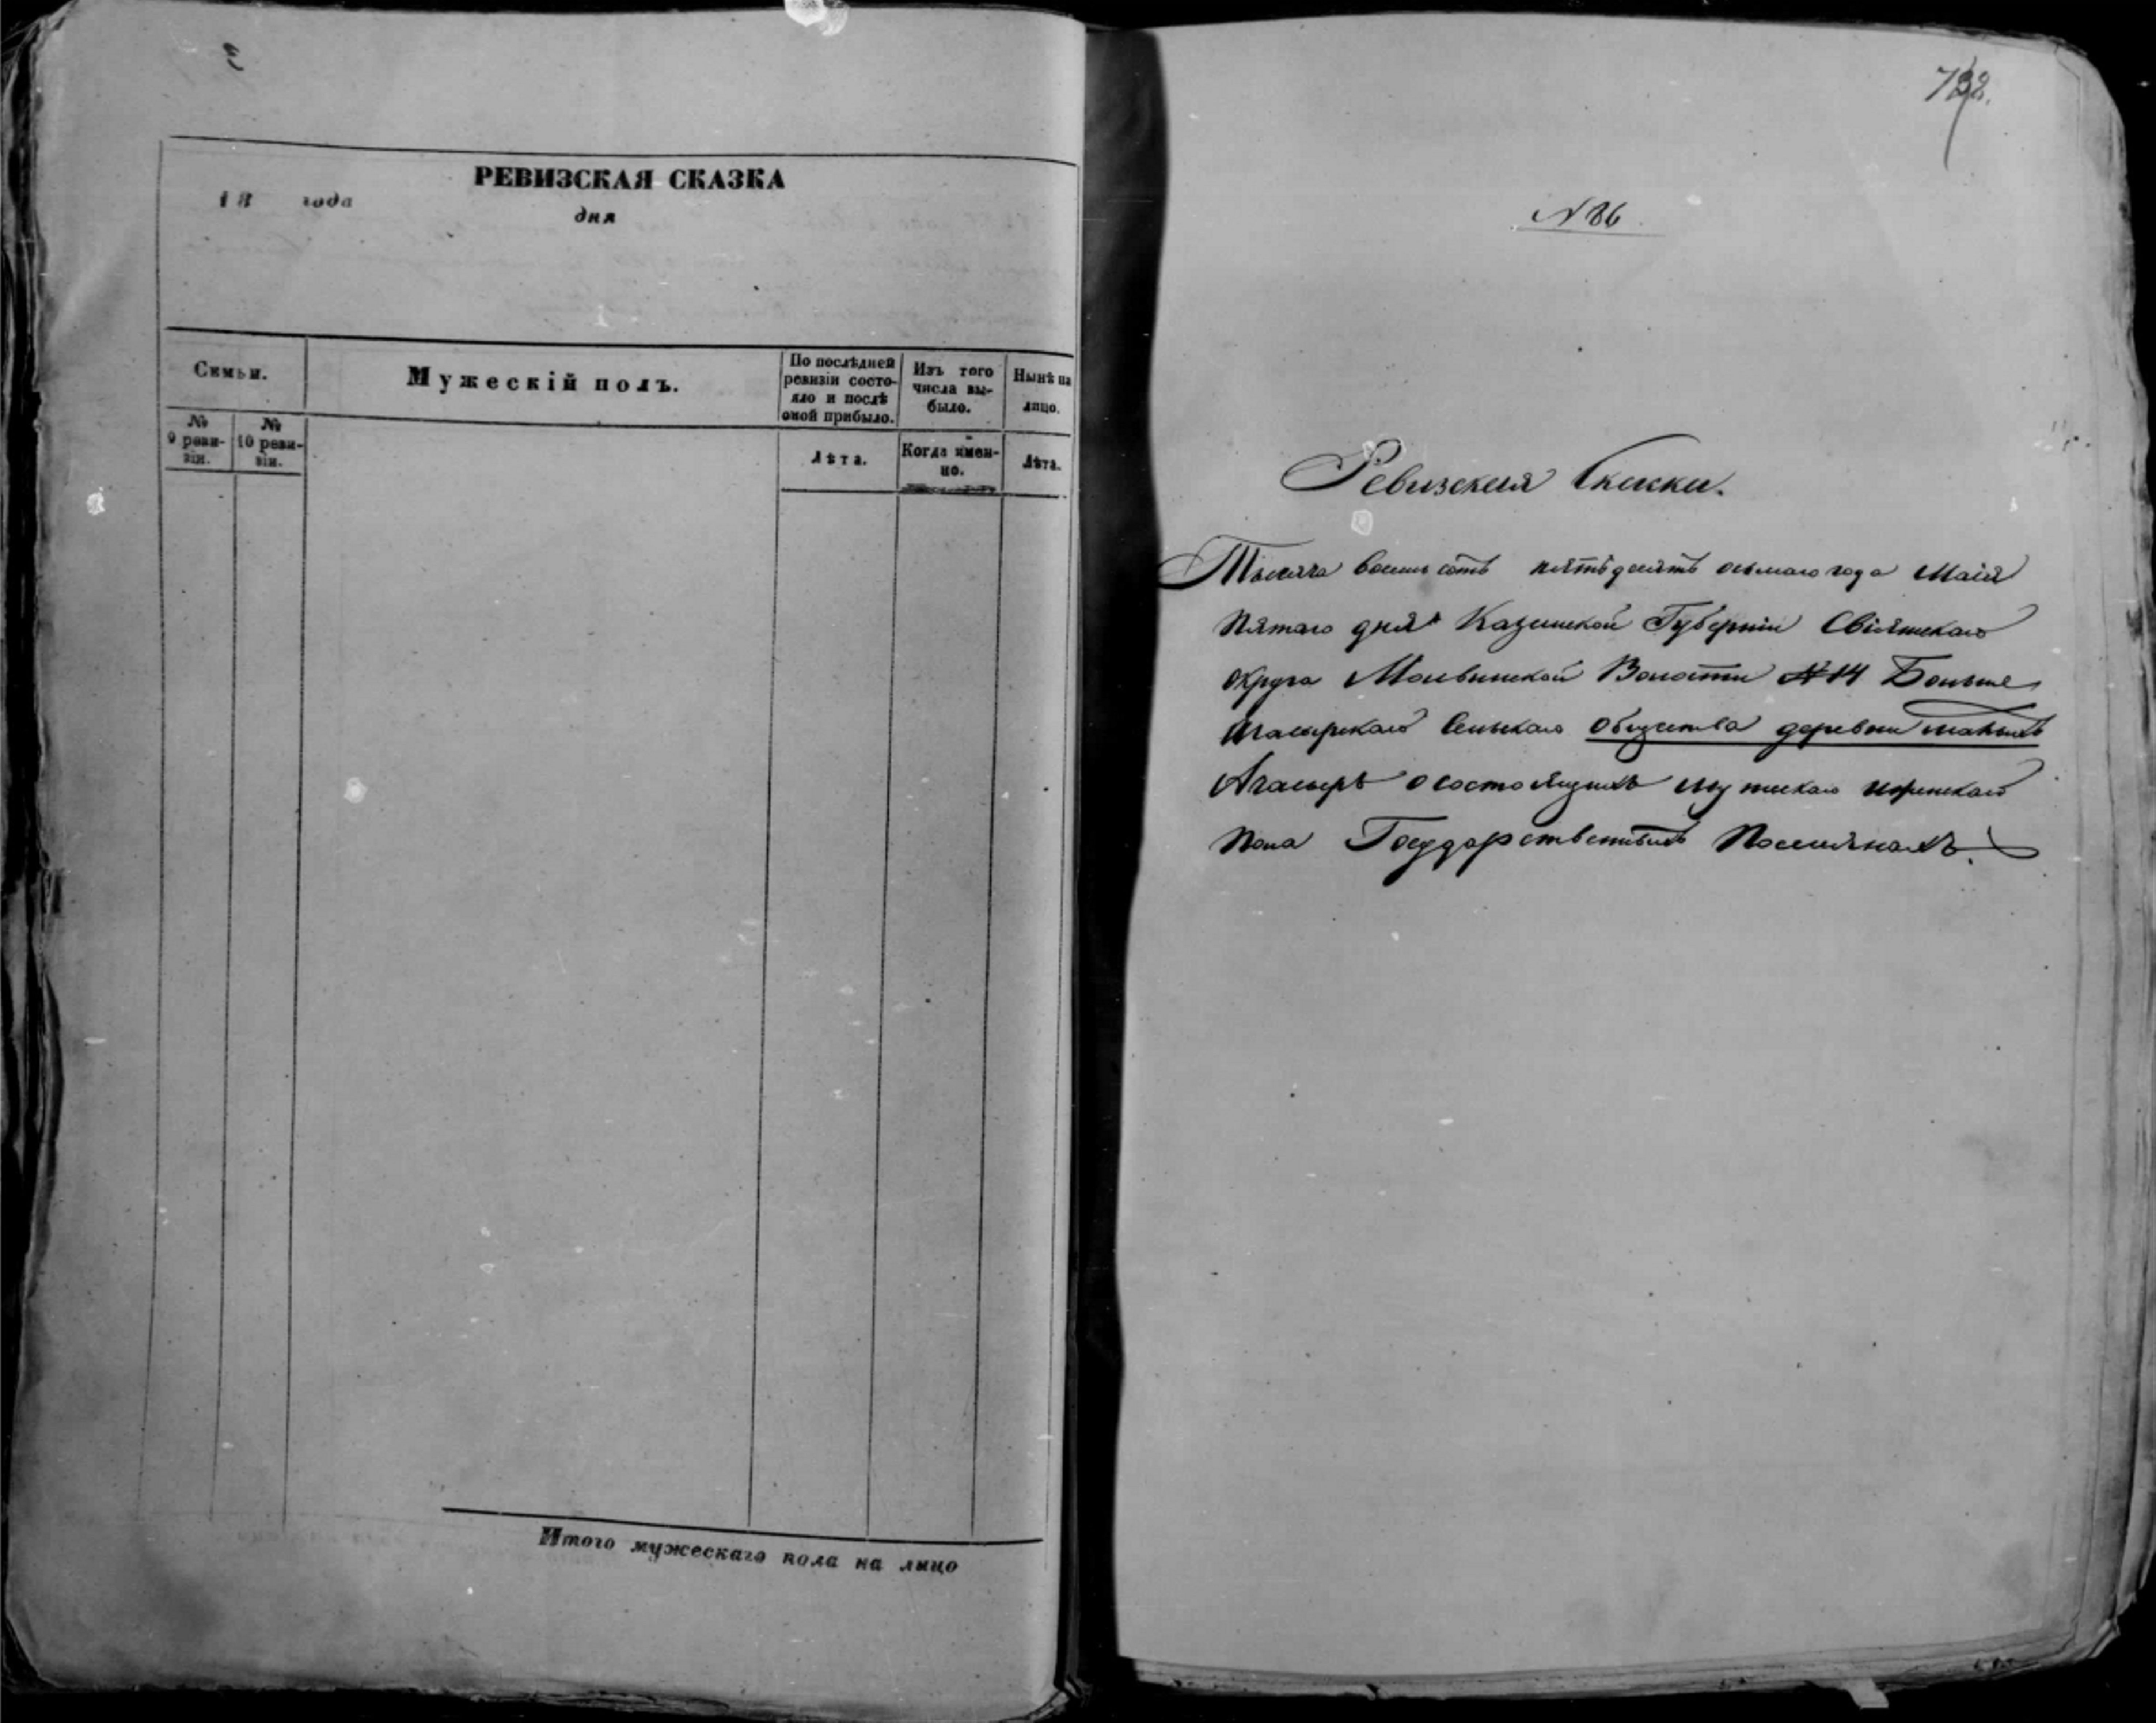 РЕВИЗСКАЯ СКАЗКА
18 года
дня
Семьи.
Мужескій полъ.
По послѣдней ревизіи состояло и послѣ оной прибыло.
Изъ того числа выбыло.
Нынѣ на лицо.
№ 9 ревизіи.
№ 10 ревизіи.
Лѣта.
Когда именно.
Лѣта.
Итого мужескаго пола на лицо
№ 86
Ревизская Скаска.
Тысяча восемь сотъ пятьдесятъ осьмаго года Маія
пятаго дня Казанской Губерніи Свіяжскаго
округа Молвинской Волости № 14 Больше
Ачасырскаго Сельскаго общества деревни малыхъ
Ачасыръ о состоящихъ мужескаго и женскаго
пола Государственныхъ Поселянахъ.